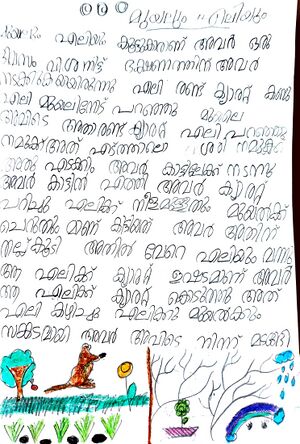 മുയലും എലിയും
മുയലും എലിയും കൂട്ടുക്കാണ് അവർ ഒരു
ദിവസം വിശന്നിട്ട് ഭക്ഷണത്തിന് അവർ
നടക്കുകയായിരുന്നു എലി രണ്ട് ക്യാരറ്റ് കണ്ടു
എലി മുയലിനോട് പറഞ്ഞു മുയലെ
അവിടെ അതാ രണ്ട് ക്യാരറ്റ് എലി പറഞ്ഞു
നമുക്ക് അത് എടുത്താലൊ ശരി നമുക്ക്
അത് എടുക്കാം അവർ കാട്ടിലേക്ക് നടന്നു
അവർ കാട്ടിൻ എത്തി അവർ ക്യാരറ്റ്
പറിച്ചു എലിക്ക് നീളമുള്ളതും മുയലിക്ക്
ചെറുതും മാണ് കിട്ടിയത് അവർ അതിന്
തല്ല്കൂടി അതിൽ വേറെ എലിയും വന്നു
ആ എലിക്ക് ക്യാരറ്റ് ഇഷ്ടമാണ് അവർ
ആ എലിക്ക് ക്യാരറ്റ് കൊടുത്തു അത്
എലി കഴിച്ചു എലിക്കും മുയലിക്കും
സങ്കടമായി അവർ അവിടെ നിന്ന് മടങ്ങി